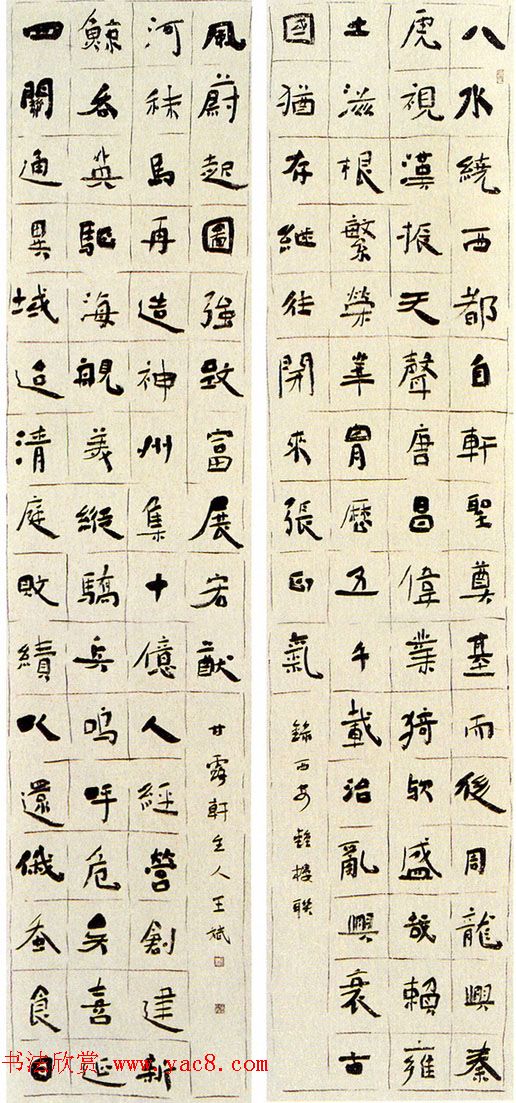 八水繞西都自軒聖奠基而後周龍興秦
虎視漢振天聲唐昌偉業猗欤盛哉賴雍
土滋根繁榮華胄歷五千載治亂興衰古
國猶存繼往開來張正氣
錄西安鐘樓聯
四關通異域迨清庭敗績以還俄蚕食日
鯨吞英駆海艦美縱驕兵嗚呼危矣喜延
河秣馬再造神州集十億人經營創建新
風蔚起圖強致富展宏猷
甘露軒主人王斌
书法欣赏 www.yac8.com